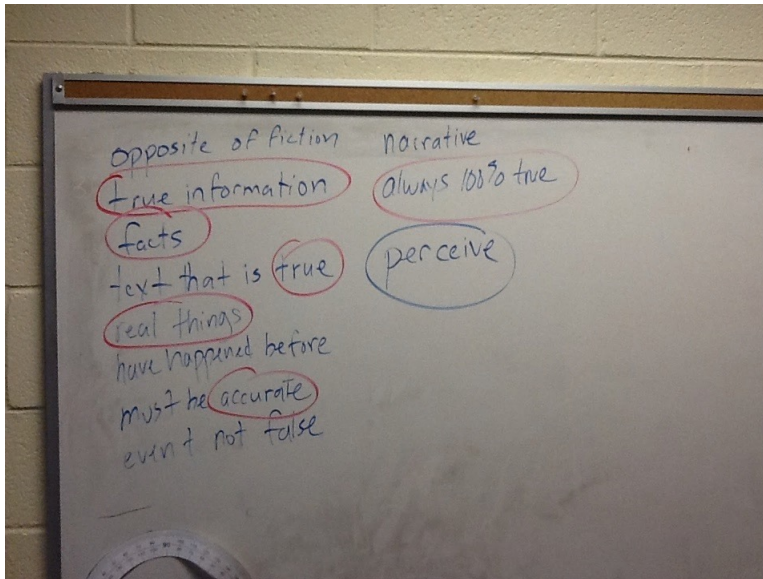 opposite of fiction
true information
facts
text that is true
real things
have happened before
must be accurate
event not false
narrative
always 100% true
perceive